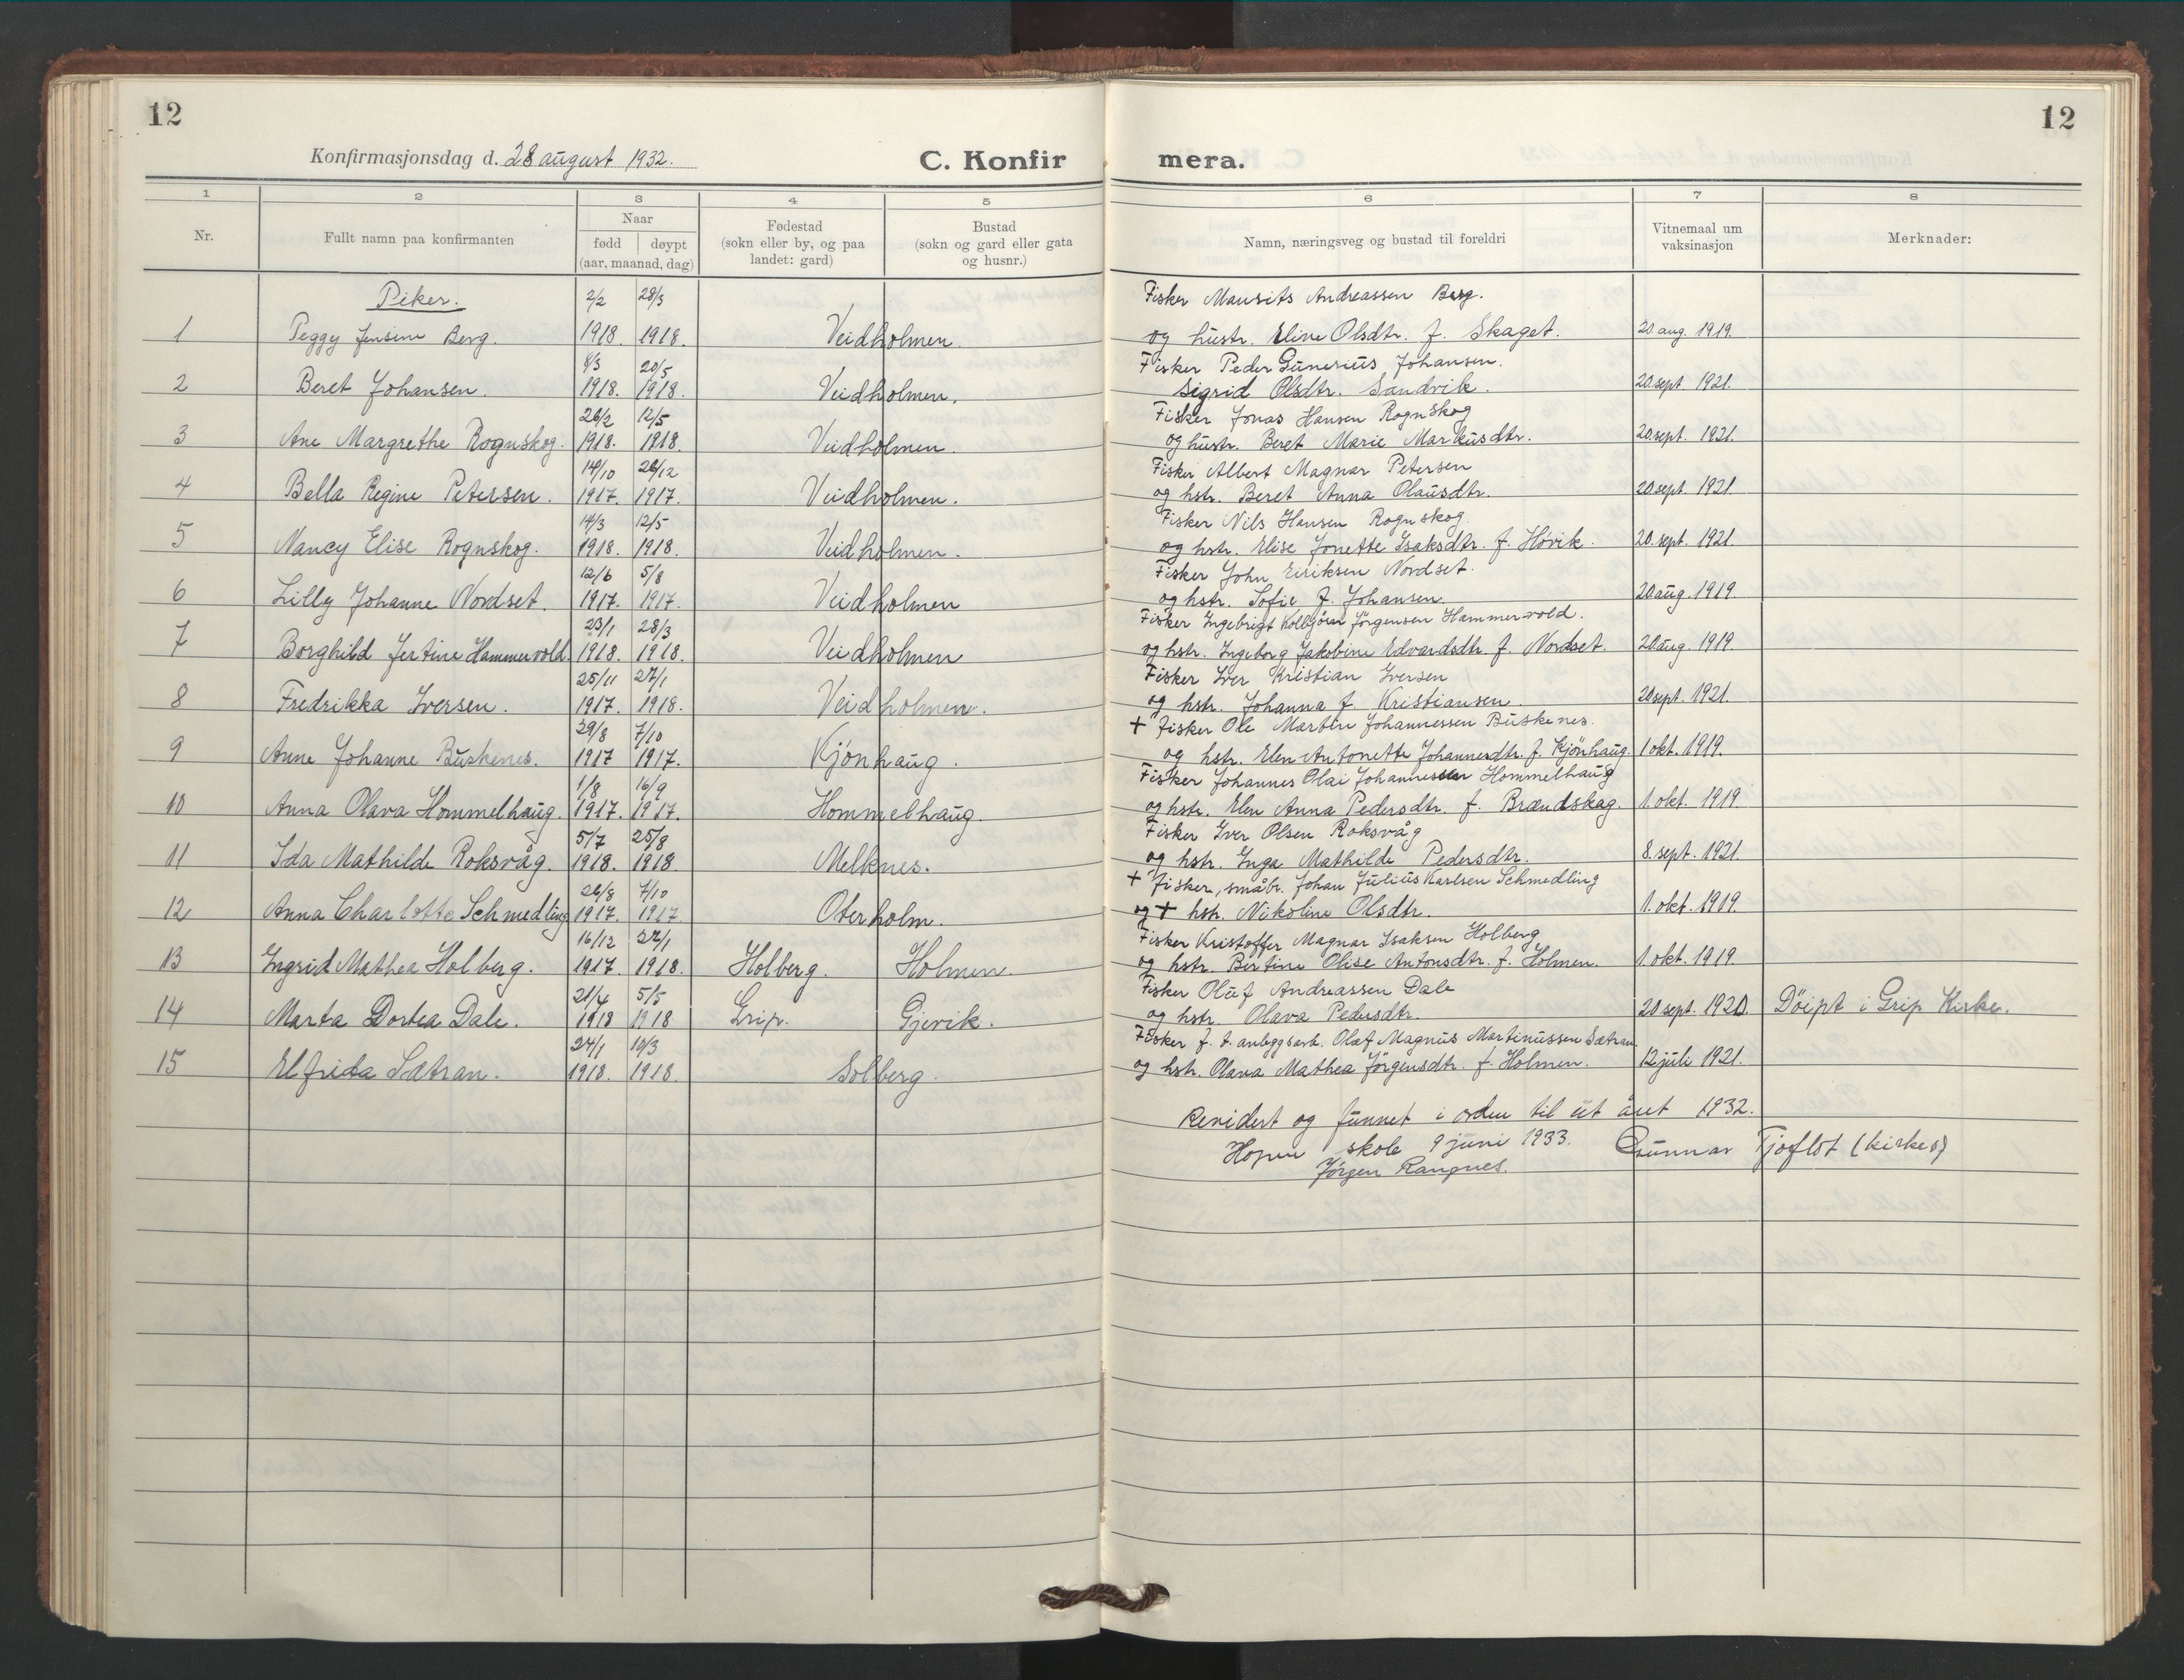 12
12
Konfirmasjonsdag d. 28 august 1932.
C. Konfir
mera.
1 2 3 4 5 6 7 8
Nr.
Fullt namn paa konfirmanten
Naar
født døypt
(aar, maanad, dag)
Fødestad
(sokn eller by, og paa
landet: gard)
Bustad
(sokn og gard eller gata
og husnr.)
Namn, næringsveg og bustad til foreldri
Vitnemaal um
vaksinasjon
Merknader:
Piker.
2/2 28/3 Fisker Mausits Andreassen Berg.
1 Peggy Jensine Berg. 1918. 1918. Veidholmen. og hustr. Eline Olsdtr. f. Skaget. 20 aug. 1919.
8/3 20/5 Fisker Peder Gunerius Johansen.
2 Beret Johansen. 1918. 1918. Veidholmen. Sigrid Olsdtr. Sandvik. 20 sept. 1921.
26/2 12/5 Fisker Jonas Hansen Rognskog
3 Ane Margrethe Rognskog. 1918. 1918. Veidholmen. og hustr. Beret Marie Markusdtr. 20. sept. 1921.
14/10 26/12 Fisker Albert Magnar Petersen
4 Bella Regine Petersen. 1917. 1917. Veidholmen. og hstr. Beret Anna Olausdtr. 20 sept. 1921.
14/3 12/5 Fisker Nils Hansen Rognskog.
5 Nancy Elise Rognskog. 1918. 1918. Veidholmen. og hstr. Elise Jonette Isaksdtr. f. Høvik. 20. sept. 1921.
12/6 5/8 Fisker John Eiriksen Nordset.
6 Lilly Johanne Nordset. 1917. 1917. Veidholmen og hstr. Sofie f. Johansen. 20 aug. 1919.
23/1 28/3 Fisker Ingebrigt Kolbjörn Jörgensen Hammervold.
7 Borghild Jertine Hammervold. 1918. 1918. Veidholmen og hstr. Ingeborg Jakobine Edvardsdtr. f. Nordset. 20 aug. 1919.
25/11 27/1 Fisker Iver Kristian Iversen
8 Fredrikka Iversen. 1917. 1918. Veidholmen. og hstr. Johanna f. Kristiansen. 20 sept. 1921.
29/8 7/10 + Fisker Ole Martin Johannessen Buskenes.
9 Anne Johanne Buskenes. 1917 1917. Kjönhaug. og hstr. Elen Antonette Johannesdtr. f. Kjönhaug. 1 okt. 1919.
1/8 16/9 Fisker Johannes Olai Johannessen Hommelhaug
10 Anna Olava Hommelhaug. 1917. 1917. Hommelhaug. og hstr. Elen Anna Pedersdtr. f. Brændskag. 1. okt. 1919.
5/7 25/8 Fisker Iver Olsen Roksvåg
11 Ida Mathilde Roksvåg. 1918. 1918. Melknes. og hstr. Inga Mathilde Pedersdtr. 8. sept. 1921.
26/8 7/10 + Fisker, småbr. Johan Julius Karlsen Schmedling
12 Anna Charlotte Schmedling 1917. 1917 Oterholm. og + hstr. Nikoline Olsdtr. 1. okt. 1919.
16/12 27/1 Fisker Kristoffer Magnar Isaksen Holberg
13 Ingrid Mathea Holberg. 1917. 1918. Holberg. Holmen. og hstr. Bertine Olise Antonsdtr. f. Holmen. 1 okt. 1919.
21/4 5/5 Fisker Oluf Andreassen Dale
14 Marta Dortea Dale. 1918 1918 Grip. Gjevik. og hstr. Olava Pedersdtr. 20 sept. 1920. Döipt i Grip Kirke.
24/1 10/3 Fisker f. t. anleggsarb. Olaf Magnus Martinussen Sætran.
15 Elfrida Sætran. 1918. 1918. Solberg. og hstr. Olava Mathea Jörgensdtr. f. Holmen. 12 juli 1921.
Revidert og funnet i orden til ut året 1932.
Hopen skole 9 juni 1933. Gunnar Tjoflot (kirkes)
Jörgen Rangnes.